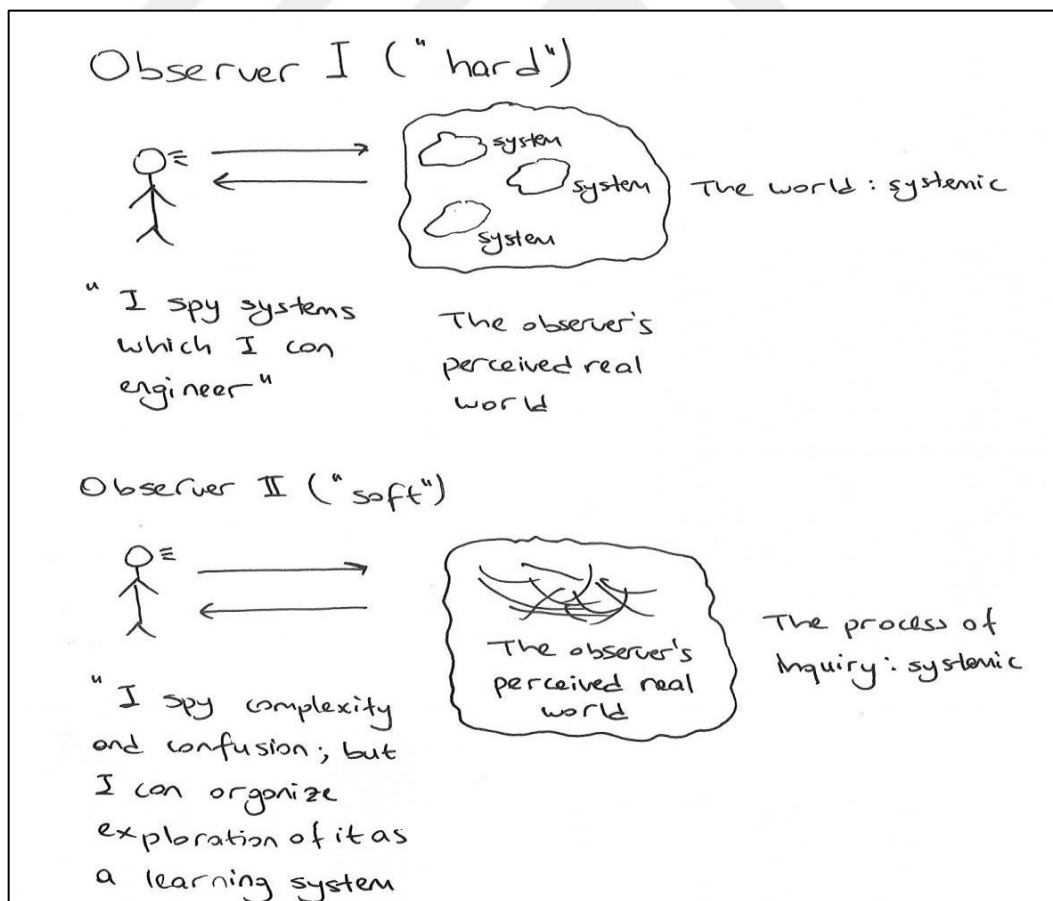 Observer I ("hard")
system
system
system
The world: systemic
"I spy systems
which I can
engineer"
The observer's
perceived real
world
Observer II ("soft")
The observer's
perceived real
world
The process of
inquiry: systemic
"I spy complexity
and confusion; but
I can organize
exploration of it as
a learning system